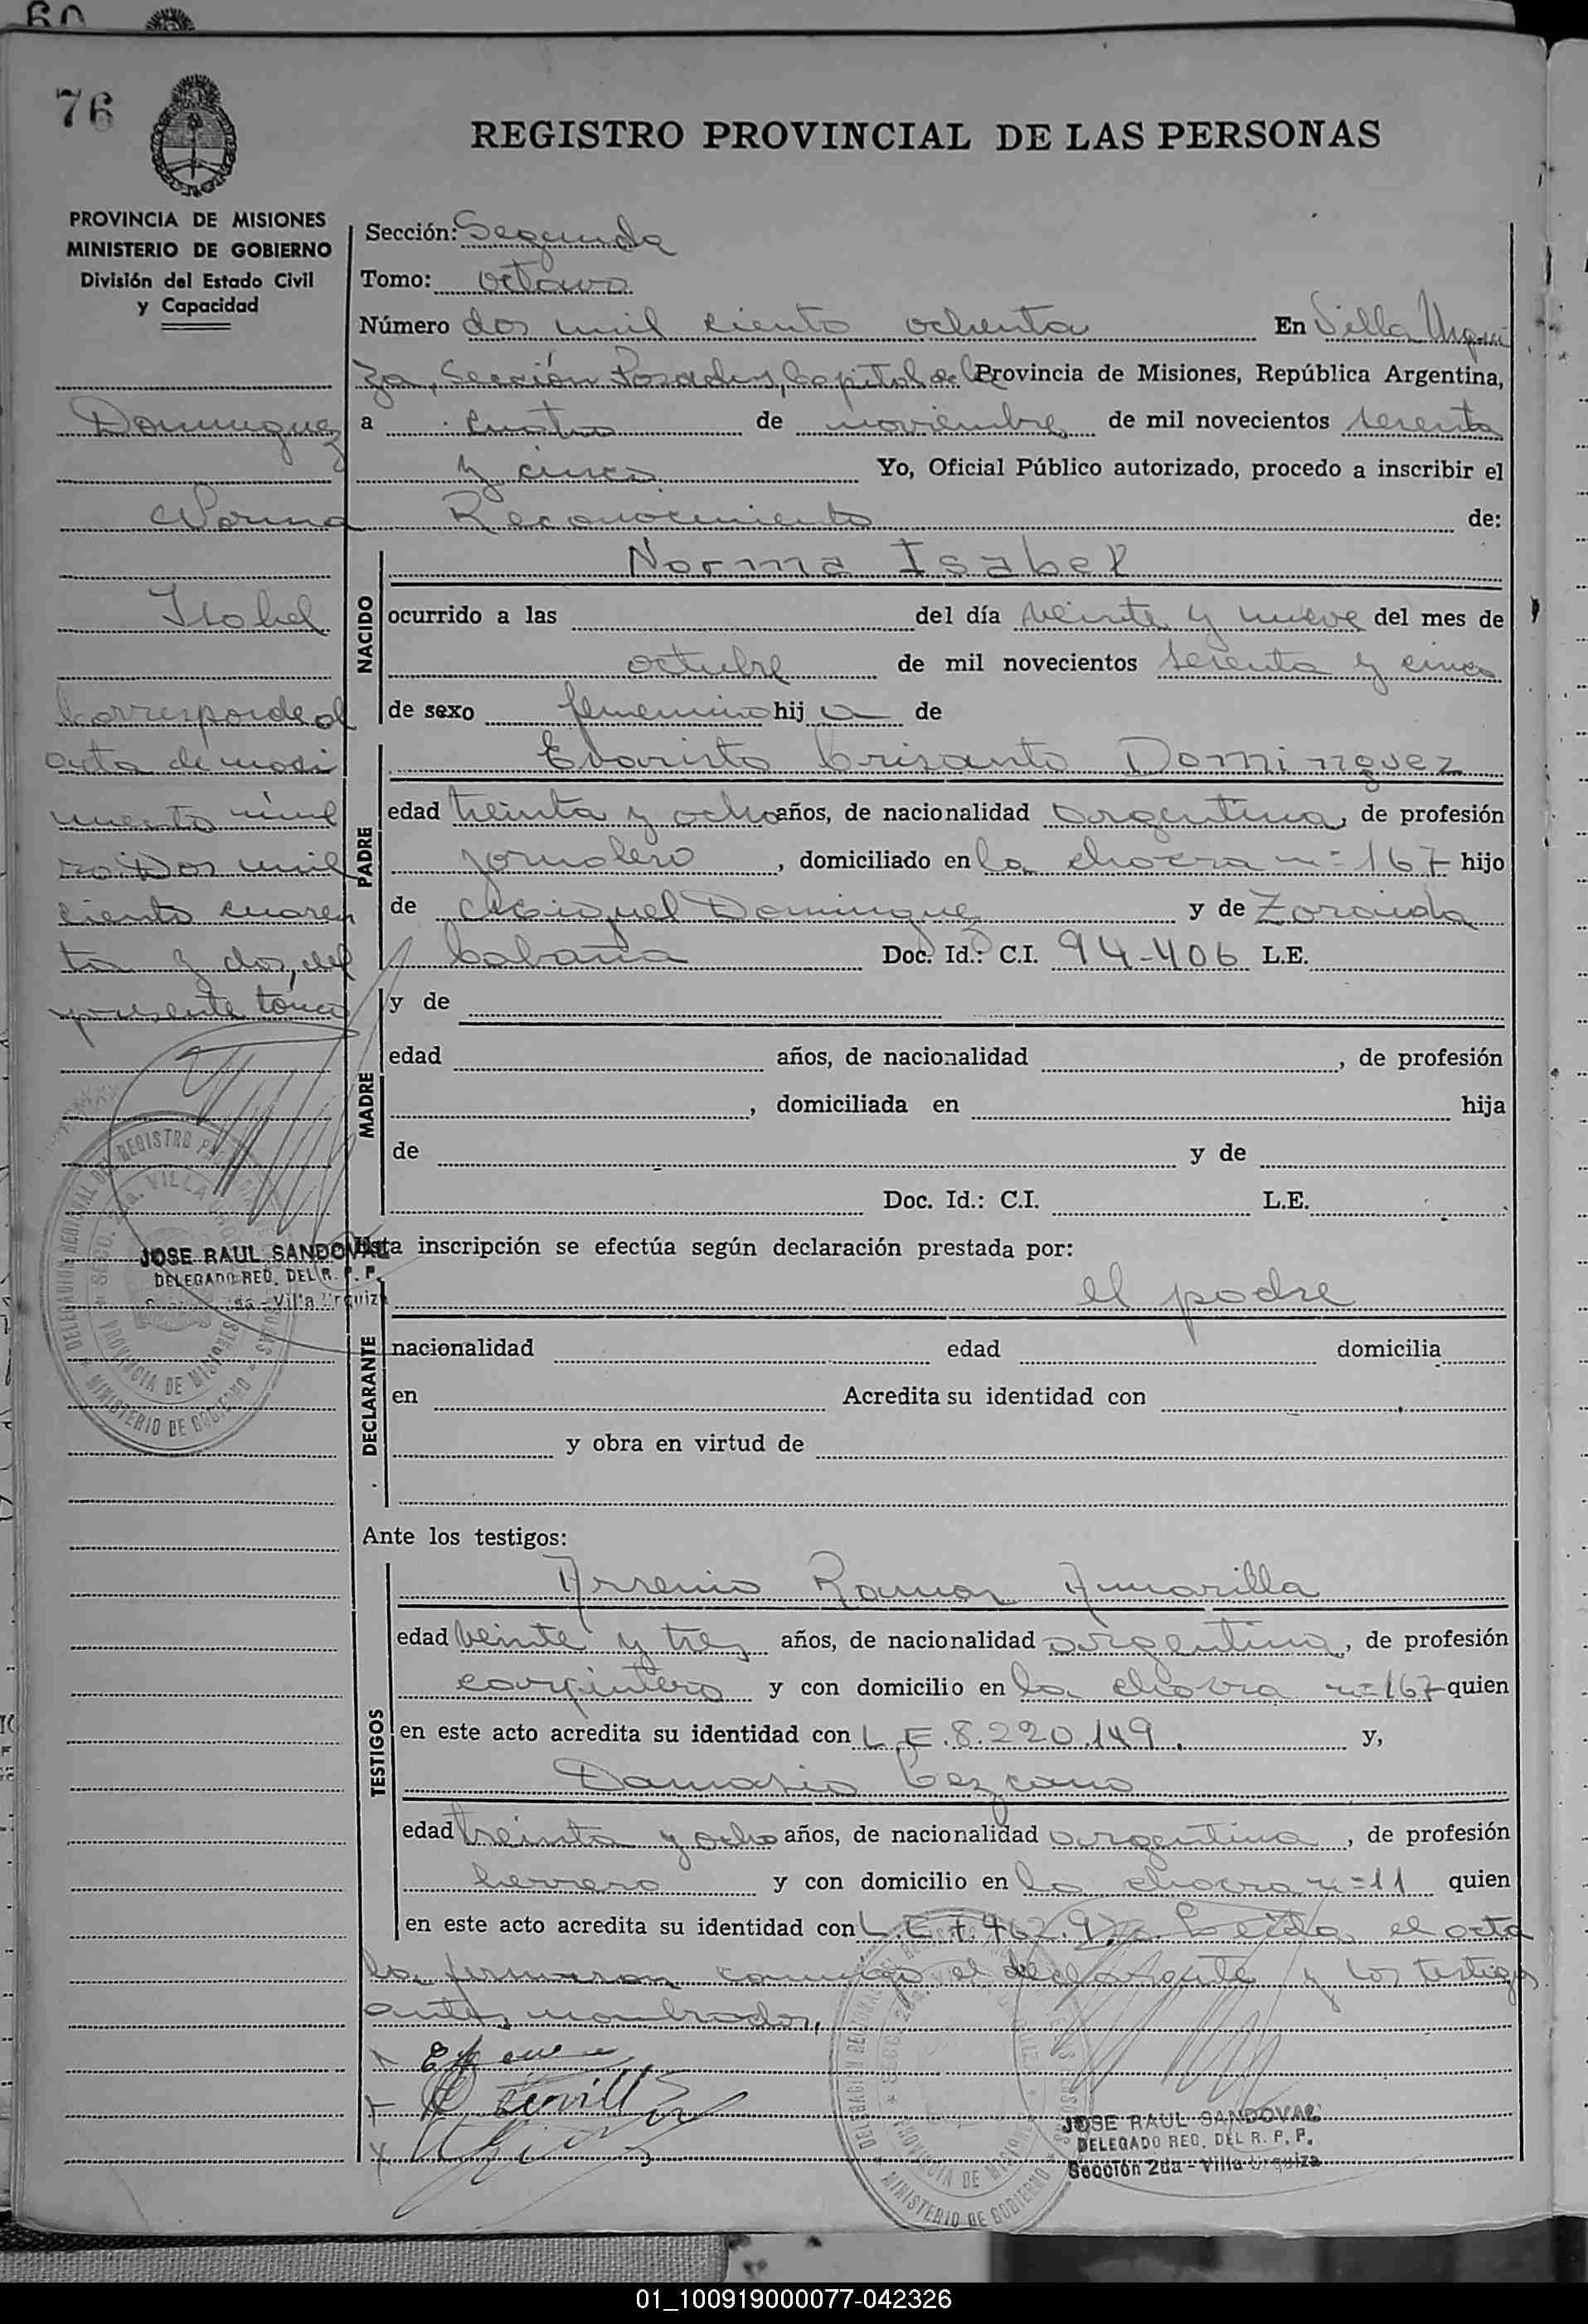 76
REGISTRO PROVINCIAL DE LAS PERSONAS
PROVINCIA DE MISIONES
MINISTERIO DE GOBIERNO
División del Estado Civil
y Capacidad
Dominguez
Norma
Isabel
Corresponde al
acta de naci
miento núme
ro: Dos mil
ciento cuaren
ta y dos, del
presente tomo
JOSE RAUL SANDOVAL
DELEGADO REG. DEL R. P. P.
2da - Villa Urquiza
Sección: Segunda
Tomo: octavo
Número dos mil ciento ochenta En Villa Urqui
za, Sección Posadas, Capital de la Provincia de Misiones, República Argentina,
a cuatro de noviembre de mil novecientos sesenta
y cinco Yo, Oficial Público autorizado, procedo a inscribir el
Reconocimiento de:
NACIDO
Norma Isabel
ocurrido a las del día veinte y nueve del mes de
octubre de mil novecientos sesenta y cinco
de sexo femenino hij a de
PADRE
Evaristo Crisanto Dominguez
edad treinta y ocho años, de nacionalidad argentina, de profesión
jornalero, domiciliado en la chacra n= 167 hijo
de Miguel Dominguez y de Zoraida
Cabaña Doc. Id.: C.I. 94-406 L.E.
MADRE
y de
edad años, de nacionalidad , de profesión
, domiciliada en hija
de y de
Doc. Id.: C.I. L.E.
Esta inscripción se efectúa según declaración prestada por:
el padre
DECLARANTE
nacionalidad edad domicilia
en Acredita su identidad con
y obra en virtud de
Ante los testigos:
TESTIGOS
Arsenio Ramon Amarilla
edad veinte y tres años, de nacionalidad argentina, de profesión
carpintero y con domicilio en la chacra n= 167 quien
en este acto acredita su identidad con L.E. 8.220.149. y,
Damasio Lezcano
edad treinta y ocho años, de nacionalidad argentina, de profesión
herrero y con domicilio en la chacra n= 11 quien
en este acto acredita su identidad con L.E. Leída el acta
la firmaron conmigo el declarante y los testigos
antes nombrados,
JOSE RAUL SANDOVAL
DELEGADO REG. DEL R. P. P.
Sección 2da - Villa Urquiza
01_100919000077-042326